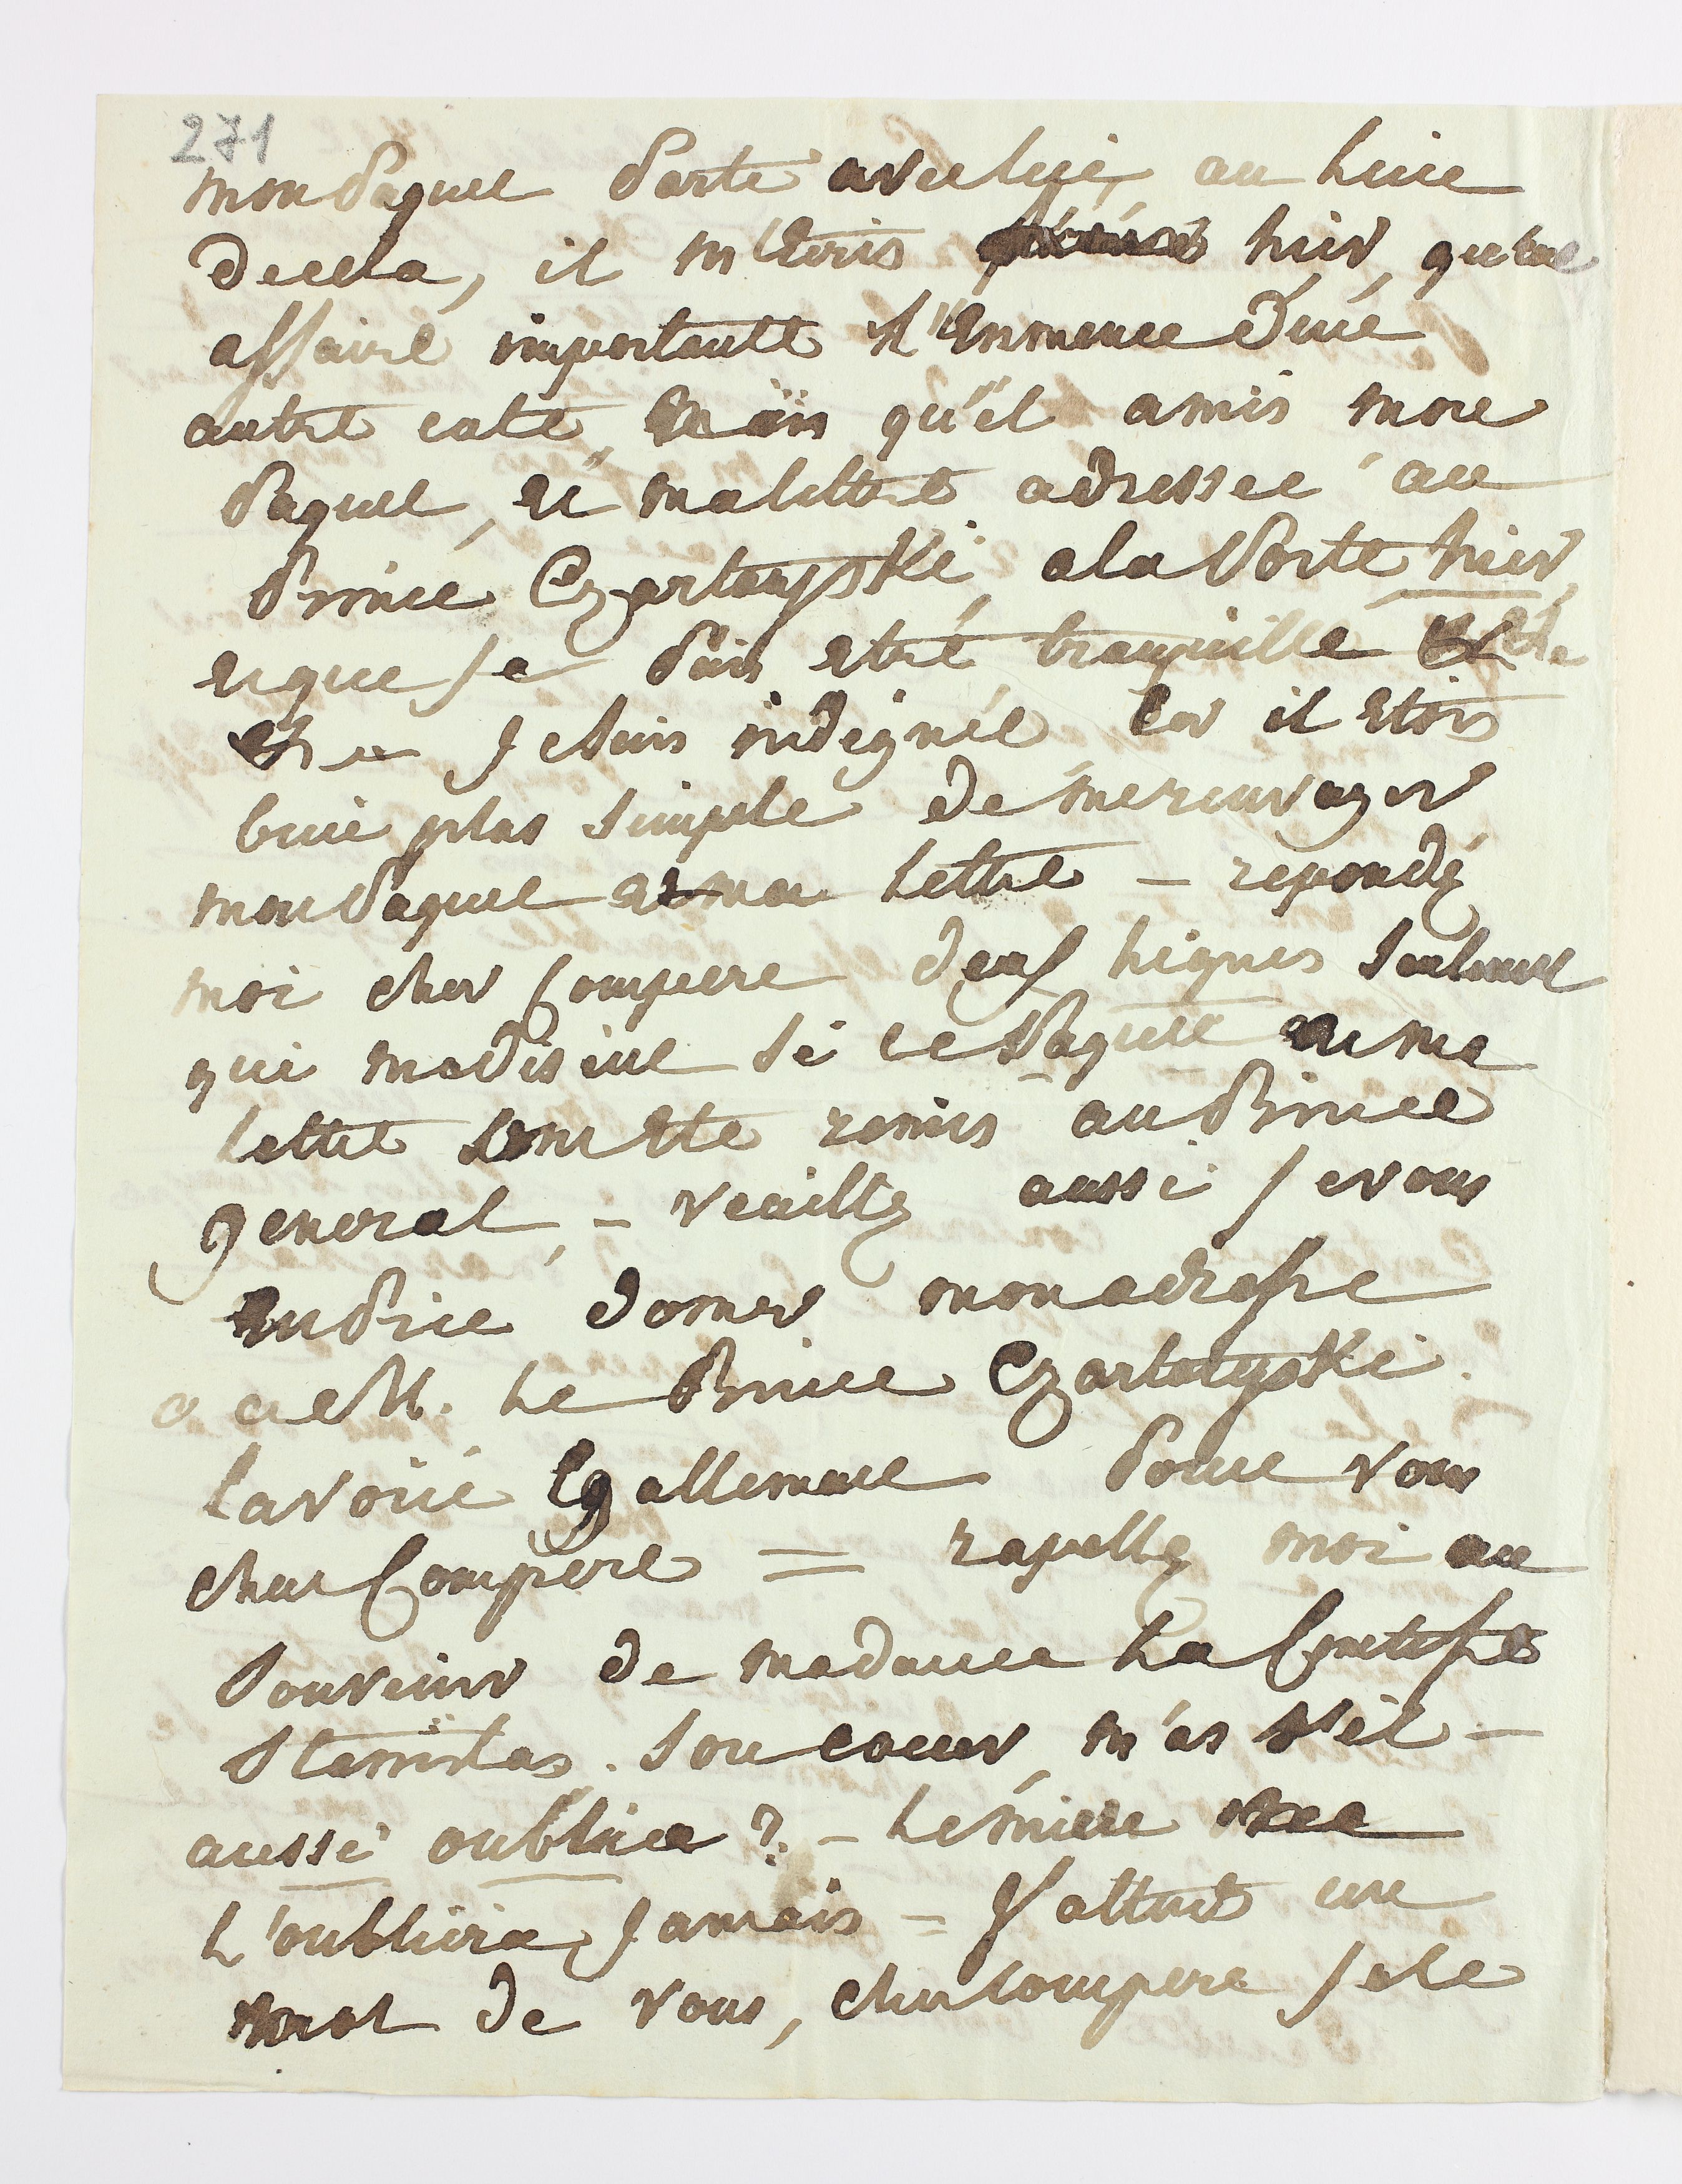 271
mon Paquet Parte avec lui, au lieu
de cela, il m'Ecris hier, qu'une
affaire importante l'Emmene d'un
autre coté, mais qu'il a mis mon
Paquet, et ma lettre adressee au
Prince Czartoryski, a la Poste hier,
et que je Puis etre tranquille
je suis indignée car il etois
bien plas simple de me renvoyer
mon Paquet et ma Lettre — repondez
moi cher Compere deux lignes seulement
qui me disent si ce Paquet et ma
lettre sont ete remis au Prince
general, — veuillez aussi je vous
en Prie donner mon adresse
a M. Le Prince Czartoryski.
l'avoie Egallement Pour vous
cher Compere = rapellez moi au
Souvenir de madame La Comtesse
Stanislas. Son coeur, m'as t'il —
aussi oubliee ? — Le mien ne
L'oubliera jamais = J'attend un
mot de vous, cher compere je le